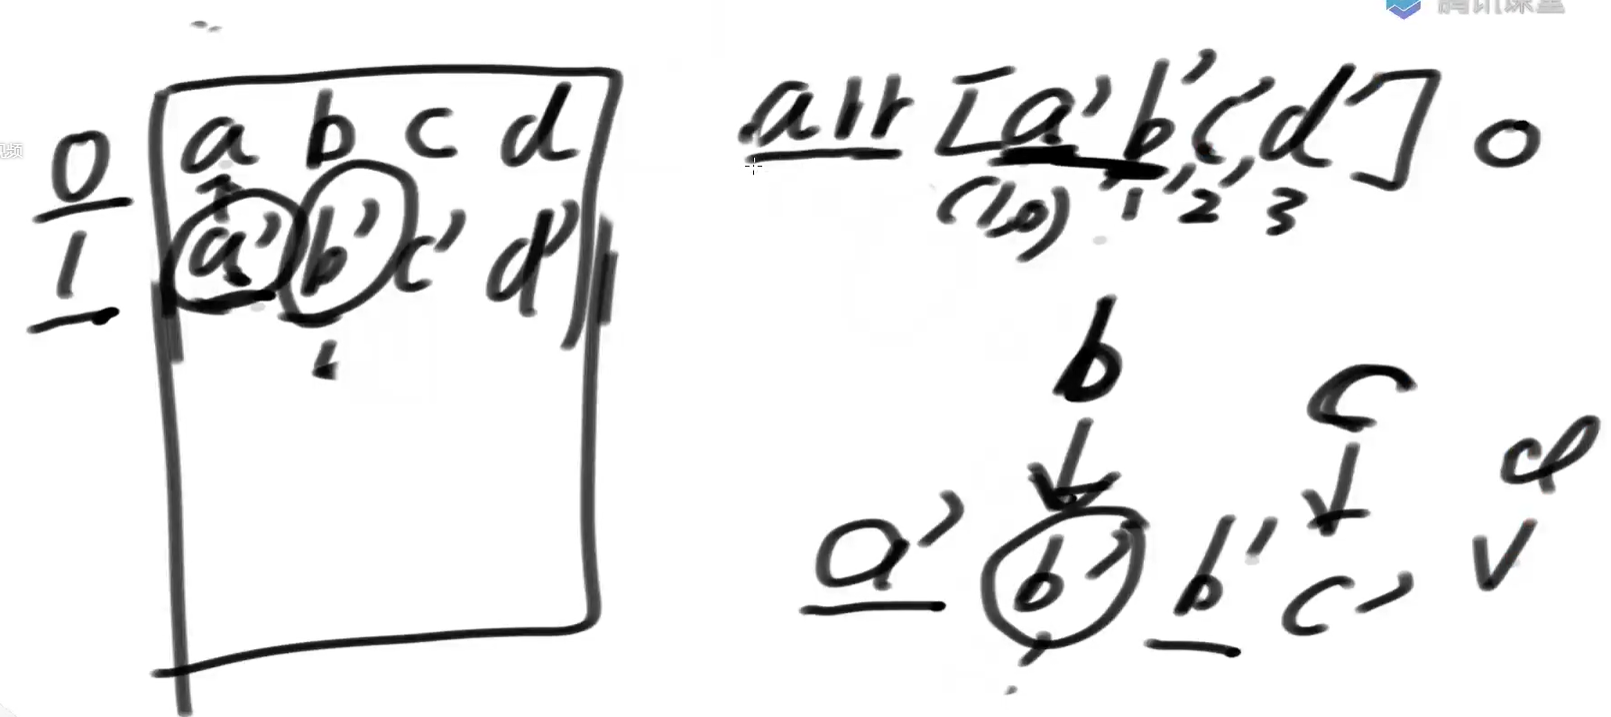 腾讯课堂
0 a b c d
1 a' b' c' d'
arr [a' b' c' d'] 0
(1,0) '1 '2' 3
b c d
a' b' b' c'